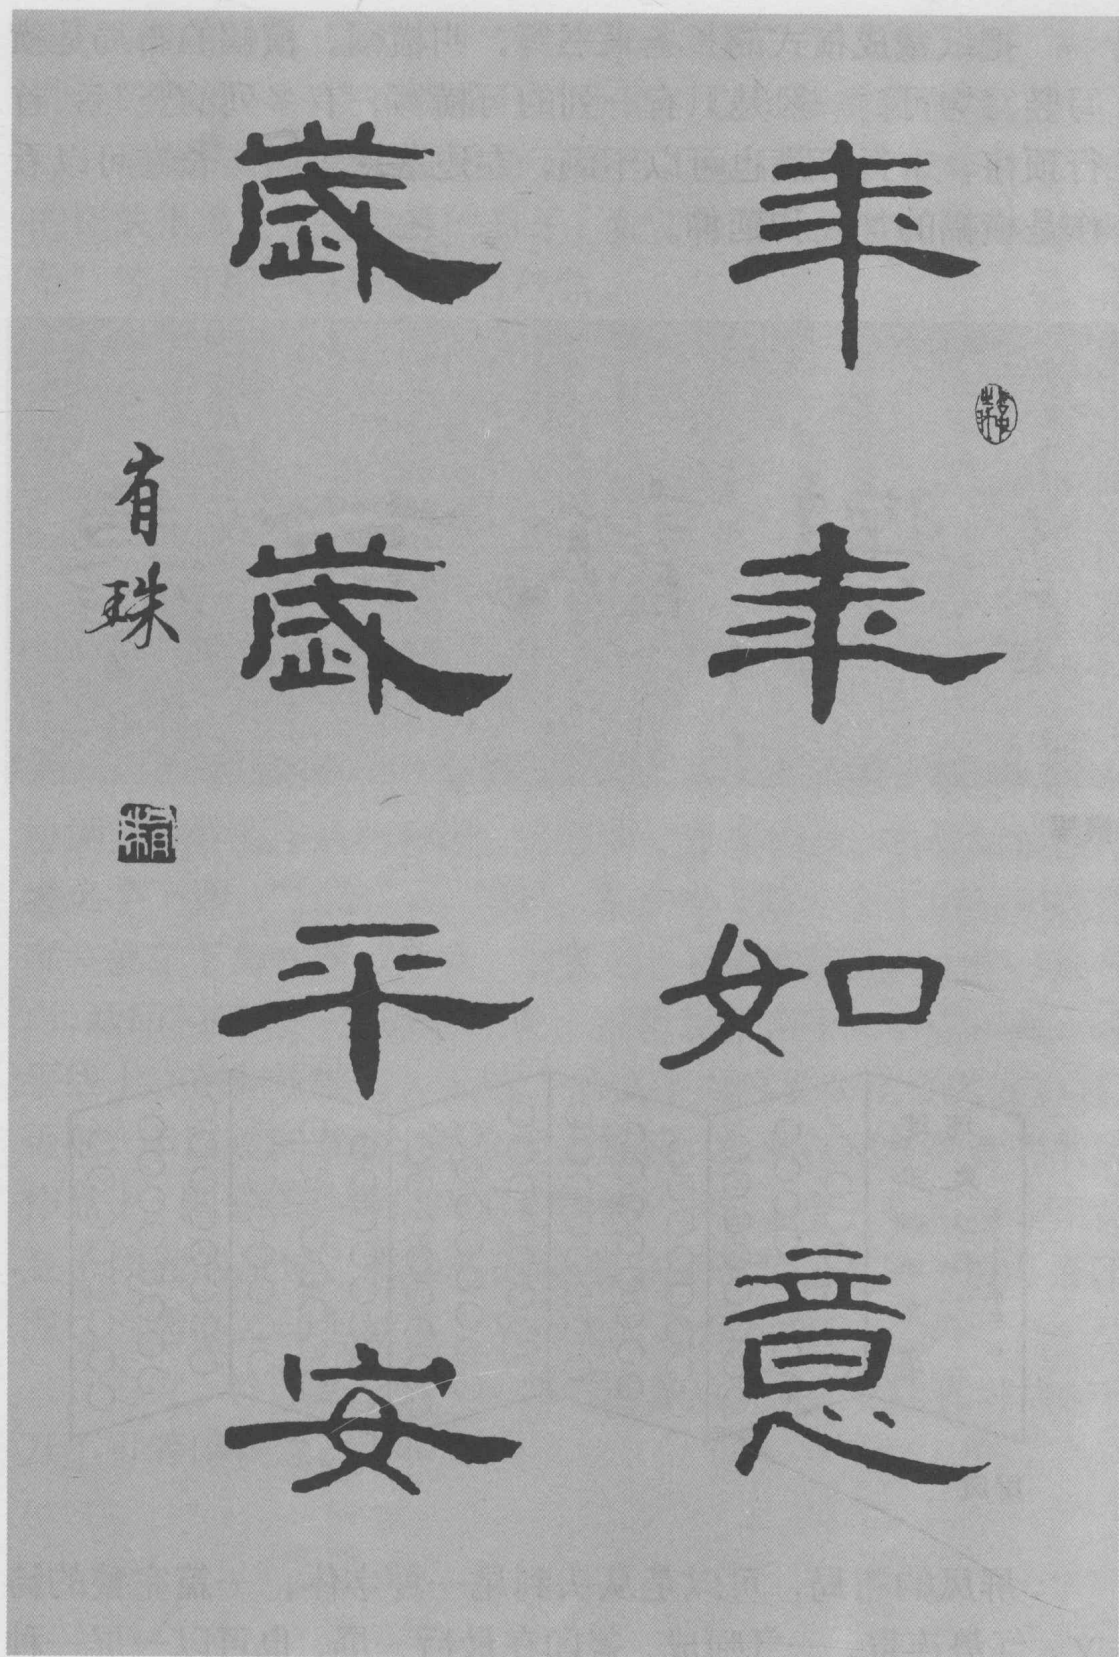 年年如意
歲歲平安
有珠